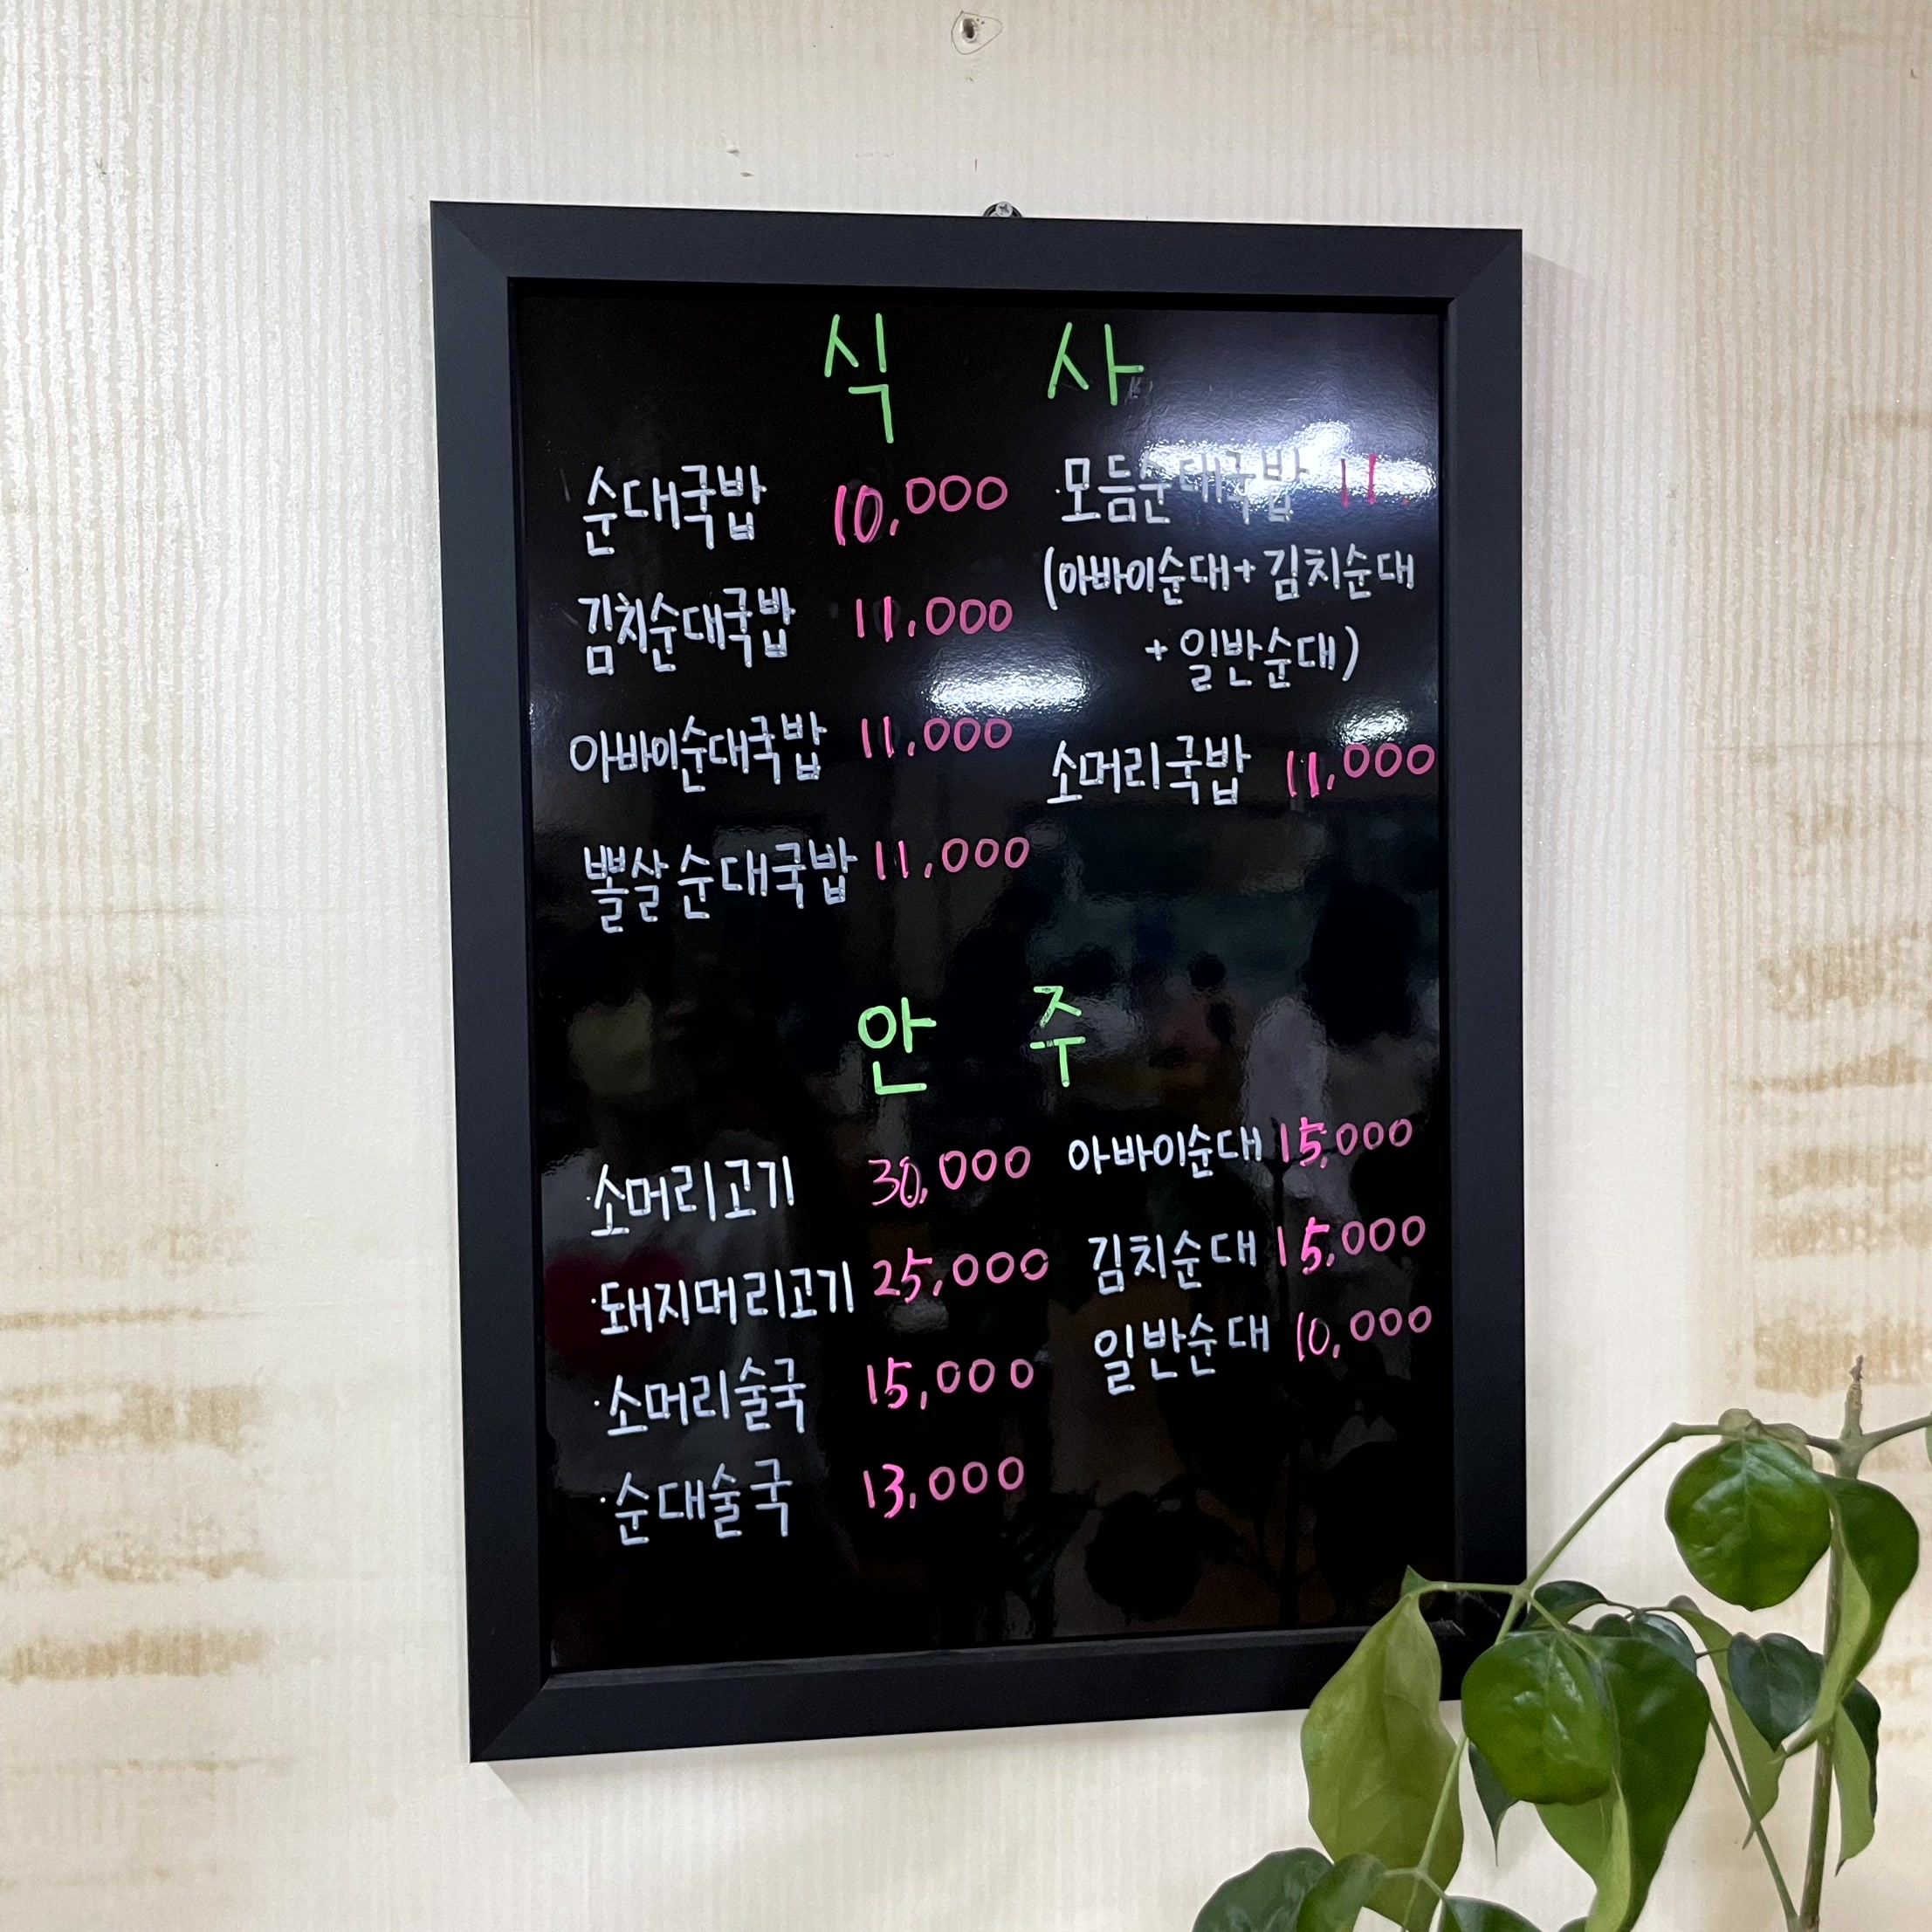 식 사
순대국밥 10,000
김치순대국밥 11,000
아바이순대국밥 11,000
뽈살순대국밥 11,000
모듬순대국밥 11.
(아바이순대+김치순대
+일반순대)
소머리국밥 11,000
안 주
소머리고기 30,000
돼지머리고기 25,000
소머리술국 15,000
순대술국 13,000
아바이순대 15,000
김치순대 15,000
일반순대 10,000